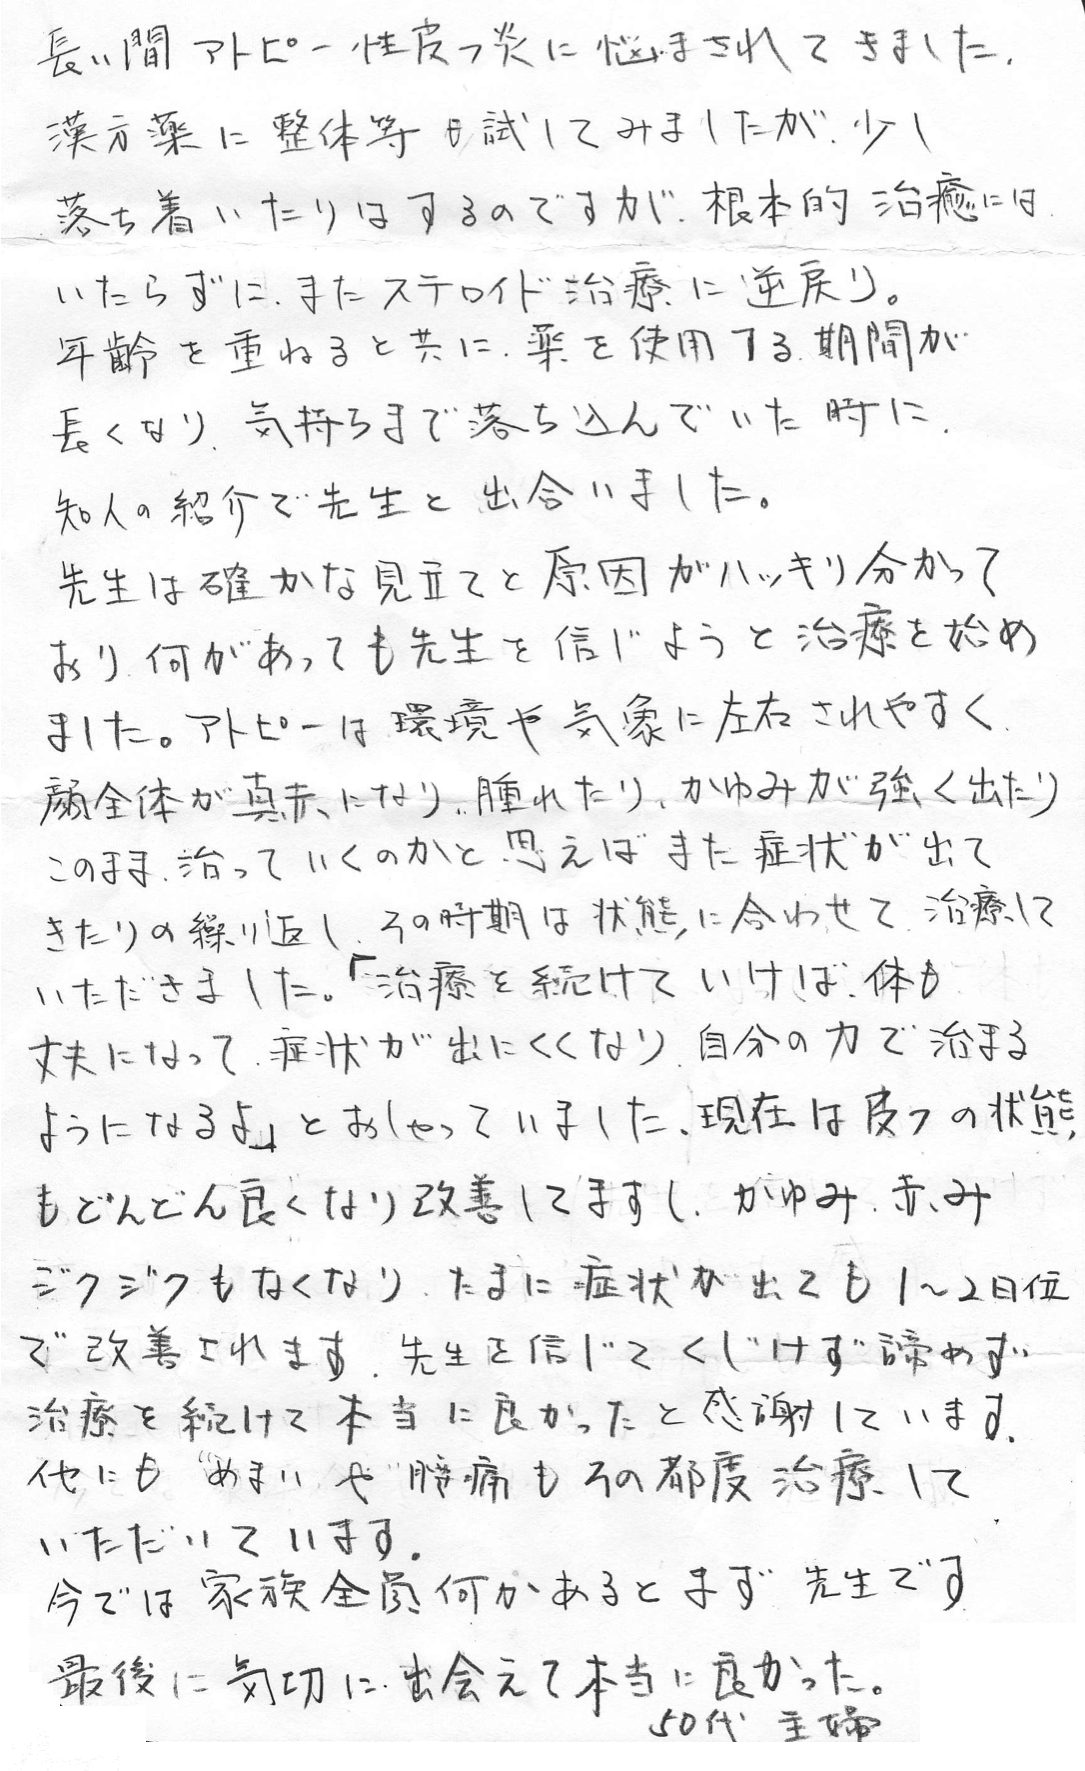 長い間 アトピー性皮フ炎に悩まされてきました.
漢方薬に 整体等も試してみましたが、少し
落ち着いたりはするのですが、根本的 治癒には
いたらずに、またステロイド治療に逆戻り。
年齢を重ねると共に、薬を使用する期間が
長くなり、気持ちまで落ち込んでいた時に、
知人の紹介で先生と出合いました。
先生は確かな見立てと原因がハッキリ分かって
おり、何があっても先生を信じようと治療を始め
ました。アトピーは環境や気象に左右されやすく、
顔全体が真赤になり、腫れたり、かゆみが強く出たり
このまま、治っていくのかと思えばまた症状が出て
きたりの繰り返し、その時期は状態に合わせて、治療して
いただきました。「治療を続けていけば、体も
丈夫になって、症状が出にくくなり、自分の力で治まる
ようになるよ」とおしゃっていました、現在は皮フの状態
もどんどん良くなり改善してますし、かゆみ、赤み
ジクジクもなくなり、たまに症状が出ても1〜2日位
で改善されます、先生を信じてくじけず諦めず
治療を続けて本当に良かったと感謝しています.
他にも めまいや 腰痛もその都度治療して
いただいています.
今では家族全員何かあるとまず 先生です
最後に気切に 出会えて本当に良かった。
50代 主婦